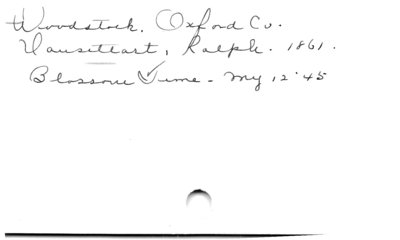 Woodstock. Oxford Co.
Vansittart, Ralph. 1861.
Blossom Time - My 12 '45